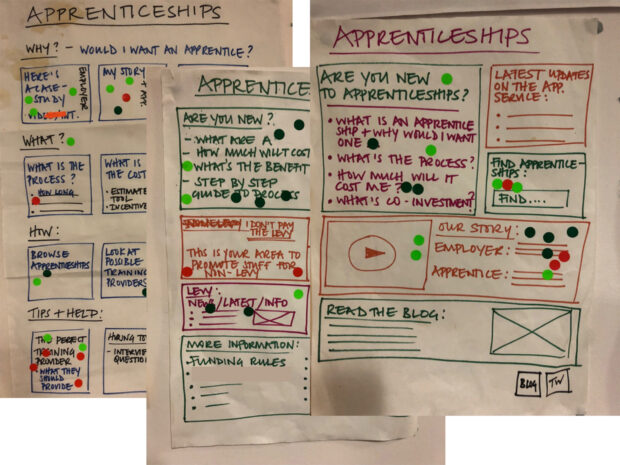 APPRENTICESHIPS
WHY? - WOULD I WANT AN APPRENTICE?
HERE'S
A CASE-
STUDY
EMPLOYER
MY STORY
WHAT?
WHAT IS THE
PROCESS?
• HOW LONG
WHAT IS
THE COST
• ESTIMATE
TOOL
• INCENTIVE
HOW:
BROWSE
APPRENTICESHIPS
LOOK AT
POSSIBLE
TRAINING
PROVIDERS
TIPS + HELP:
THE PERFECT
TRAINING
PROVIDER
- WHAT THEY
SHOULD
PROVIDE
HIRING
- INTERVIEW
QUESTION
APPRENTICE
ARE YOU NEW?
- WHAT ARE A
- HOW MUCH WILL IT COST
- WHAT'S THE BENEFIT
- STEP BY STEP
GUIDE TO PROCESS
I DON'T PAY
THE LEVY
THIS IS YOUR AREA TO
PROMOTE STUFF FOR
NON-LEVY
LEVY:
NEW/LATEST/INFO
MORE INFORMATION:
• FUNDING RULES
APPRENTICESHIPS
ARE YOU NEW
TO APPRENTICESHIPS?
• WHAT IS AN APPRENTICE
SHIP + WHY WOULD I WANT
ONE
• WHAT IS THE PROCESS?
• HOW MUCH WILL IT
COST ME?
• WHAT'S CO-INVESTMENT?
LATEST UPDATES
ON THE APP.
SERVICE:
FIND APPRENTICE-
SHIPS:
FIND....
OUR STORY:
EMPLOYER:
APPRENTICE:
READ THE BLOG:
BLOG
TW